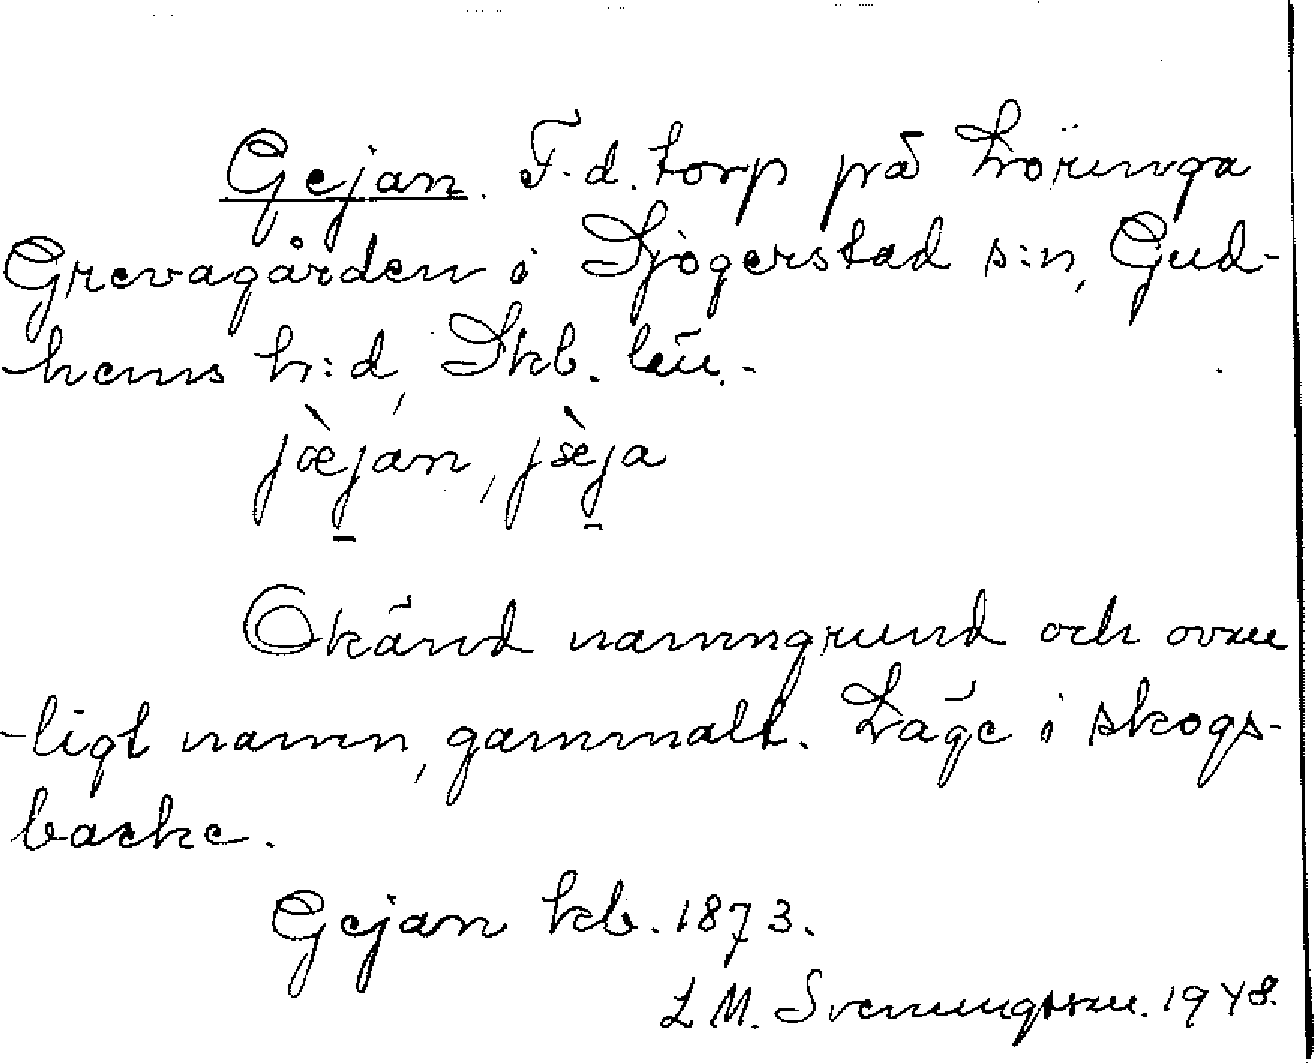 Gejan. F.d. torp på Löringa
Grevagården i Sjogerstad s:n, Gud-
hems h:d, Skb. län.-
jæ̀jan, jæ̀ja
Okänd namngrund och ovan
-ligt namn, gammalt. Läge i skogs-
backe.
Gejan kb. 1873.
L M. Svenungsson. 1948.